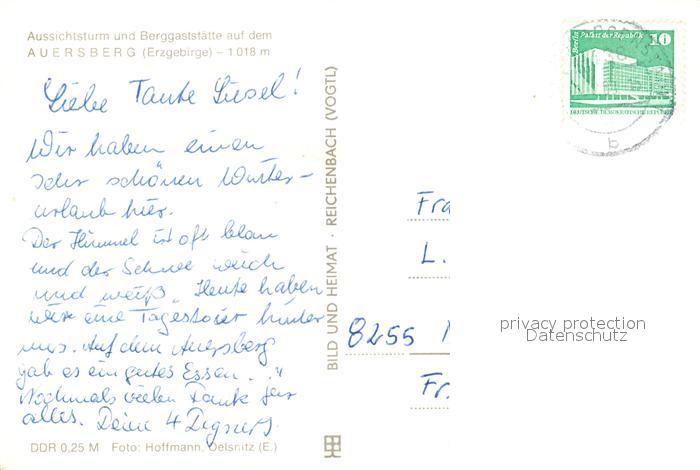 Aussichtsturm und Berggaststätte auf dem
AUERSBERG (Erzgebirge) – 1018 m
Liebe Tante Liesel!
Wir haben einen
sehr schönen Winter-
urlaub hier.
Der Himmel ist oft blau
und der Schnee weich
und weiß. Heute haben
wir eine Tagestour hinter
uns. Auf dem Auersberg
gab es ein gutes Essen.
Nochmals vielen Dank für
alles. Deine 4
DDR 0,25 M Foto: Hoffmann, Oelsnitz (E.)
BILD UND HEIMAT · REICHENBACH (VOGTL)
Berlin, Palast der Republik
10
DEUTSCHE DEMOKRATISCHE REPUBLIK
b
Fra
L.
8255
Fr.
privacy protection
Datenschutz